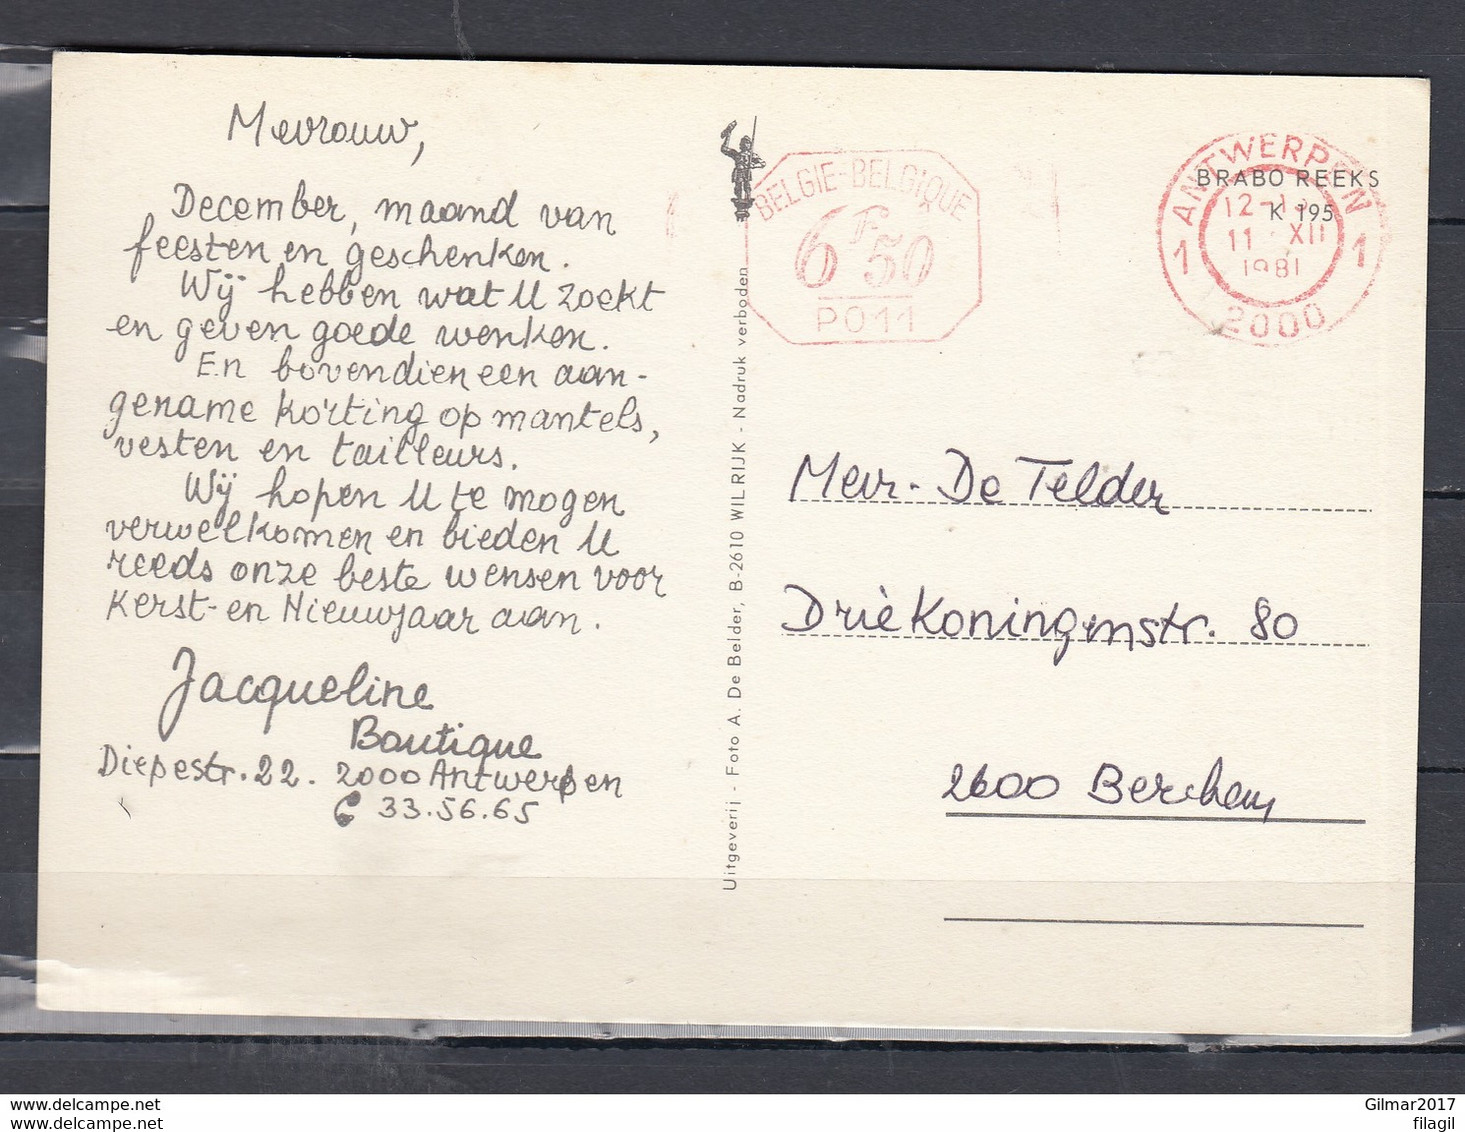 Mevrouw,
December, maand van
feesten en geschenken.
Wij hebben wat U zoekt
en geven goede wenken.
En bovendien een aan-
gename korting op mantels,
vesten en tailleurs.
Wij hopen U te mogen
verwelkomen en bieden U
reeds onze beste wensen voor
Kerst- en Nieuwjaar aan.
Jacqueline
Boutique
Diepestr. 22. 2000 Antwerpen
33.56.65
Uitgeverij - Foto A. De Belder, B-2610 WILRIJK - Nadruk verboden
BELGIE-BELGIQUE
6F50
P011
ANTWERPEN
1 1
11 XII
1981
2000
BRABO REEKS
K 195
Mevr. De Telder
Driekoningenstr. 80
2600 Berchem
www.delcampe.net
www.delcampe.net
Gilmar2017
filagil